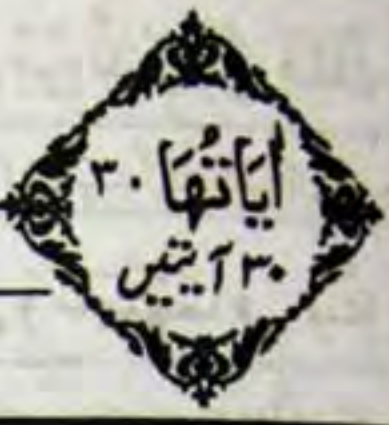 اٰیَاتُهَا ۳۰
۳۰ آیتیں